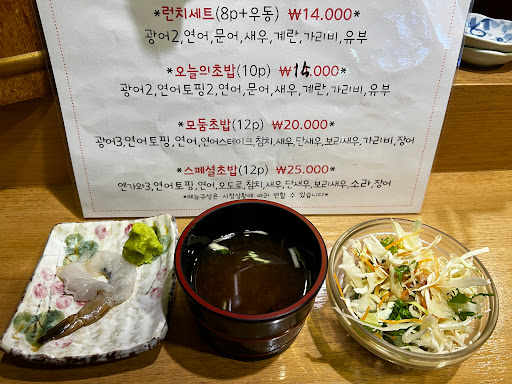 *런치세트(8p+우동) ₩14.000*
광어2,연어,문어,새우,계란,가리비,유부
*오늘의초밥(10p) ₩15.000*
광어2,연어토핑2,연어,문어,새우,계란,가리비,유부
*모둠초밥(12p) ₩20.000*
광어3,연어토핑,연어,연어스테이크,참치,새우,단새우,보리새우,가리비,장어
*스페셜초밥(12p) ₩25.000*
엔가와3,연어토핑,연어,오도로,참치,새우,단새우,보리새우,소라,장어
*메뉴구성은 시장상황에 따라 변할 수 있습니다*